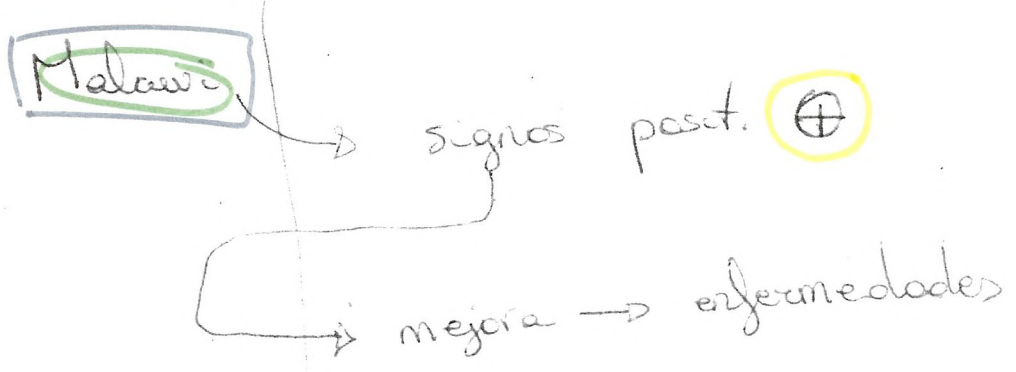 Malawi
→ signos posit. ⊕
→ mejora → enfermedades